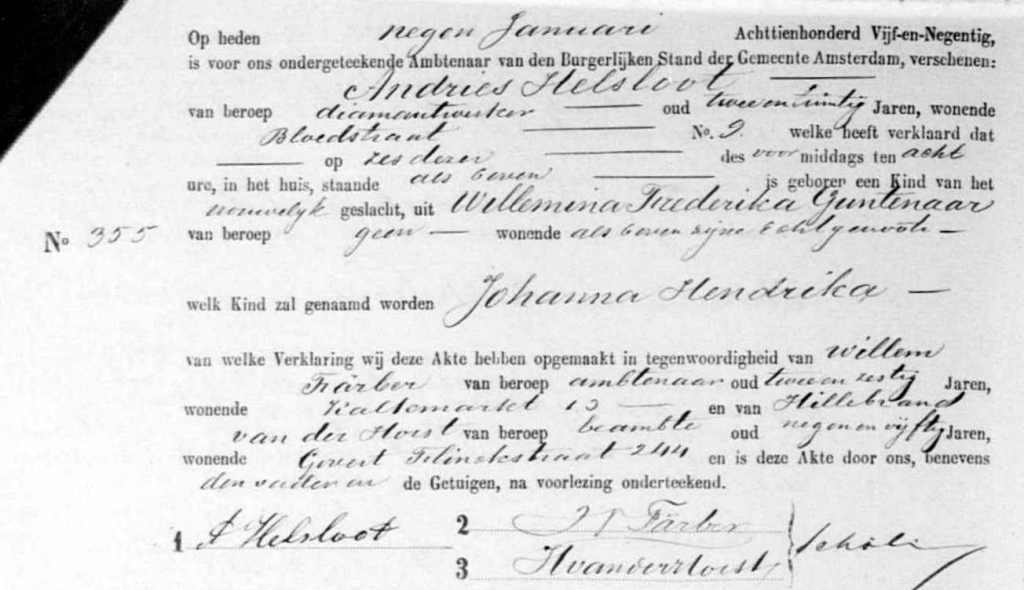 Op heden negen Januari Achttienhonderd Vijf-en-Negentig,
is voor ons ondergeteekende Ambtenaar van den Burgerlijken Stand der Gemeente Amsterdam, verschenen:
Andries Helsloot
van beroep diamantwerker oud twee en twintig Jaren, wonende
Bloedstraat No. 9 welke heeft verklaard dat
op zes dezer des voor middags ten acht
ure, in het huis, staande als boven is geboren een Kind van het
vrouwelijk geslacht, uit Willemina Frederika Guntenaar
No 355 van beroep geen wonende als boven zijne Echtgenoote
welk Kind zal genaamd worden Johanna Hendrika
van welke Verklaring wij deze Akte hebben opgemaakt in tegenwoordigheid van Willem
Färber van beroep ambtenaar oud twee en zestig Jaren,
wonende Kalkmarkt 13 en van Hillebrand
van der Horst van beroep beambte oud negen en vijftig Jaren,
wonende Govert Flinckstraat 244 en is deze Akte door ons, benevens
den vader en de Getuigen, na voorlezing onderteekend.
1 A Helsloot 2 W Färber
3 H van der Horst